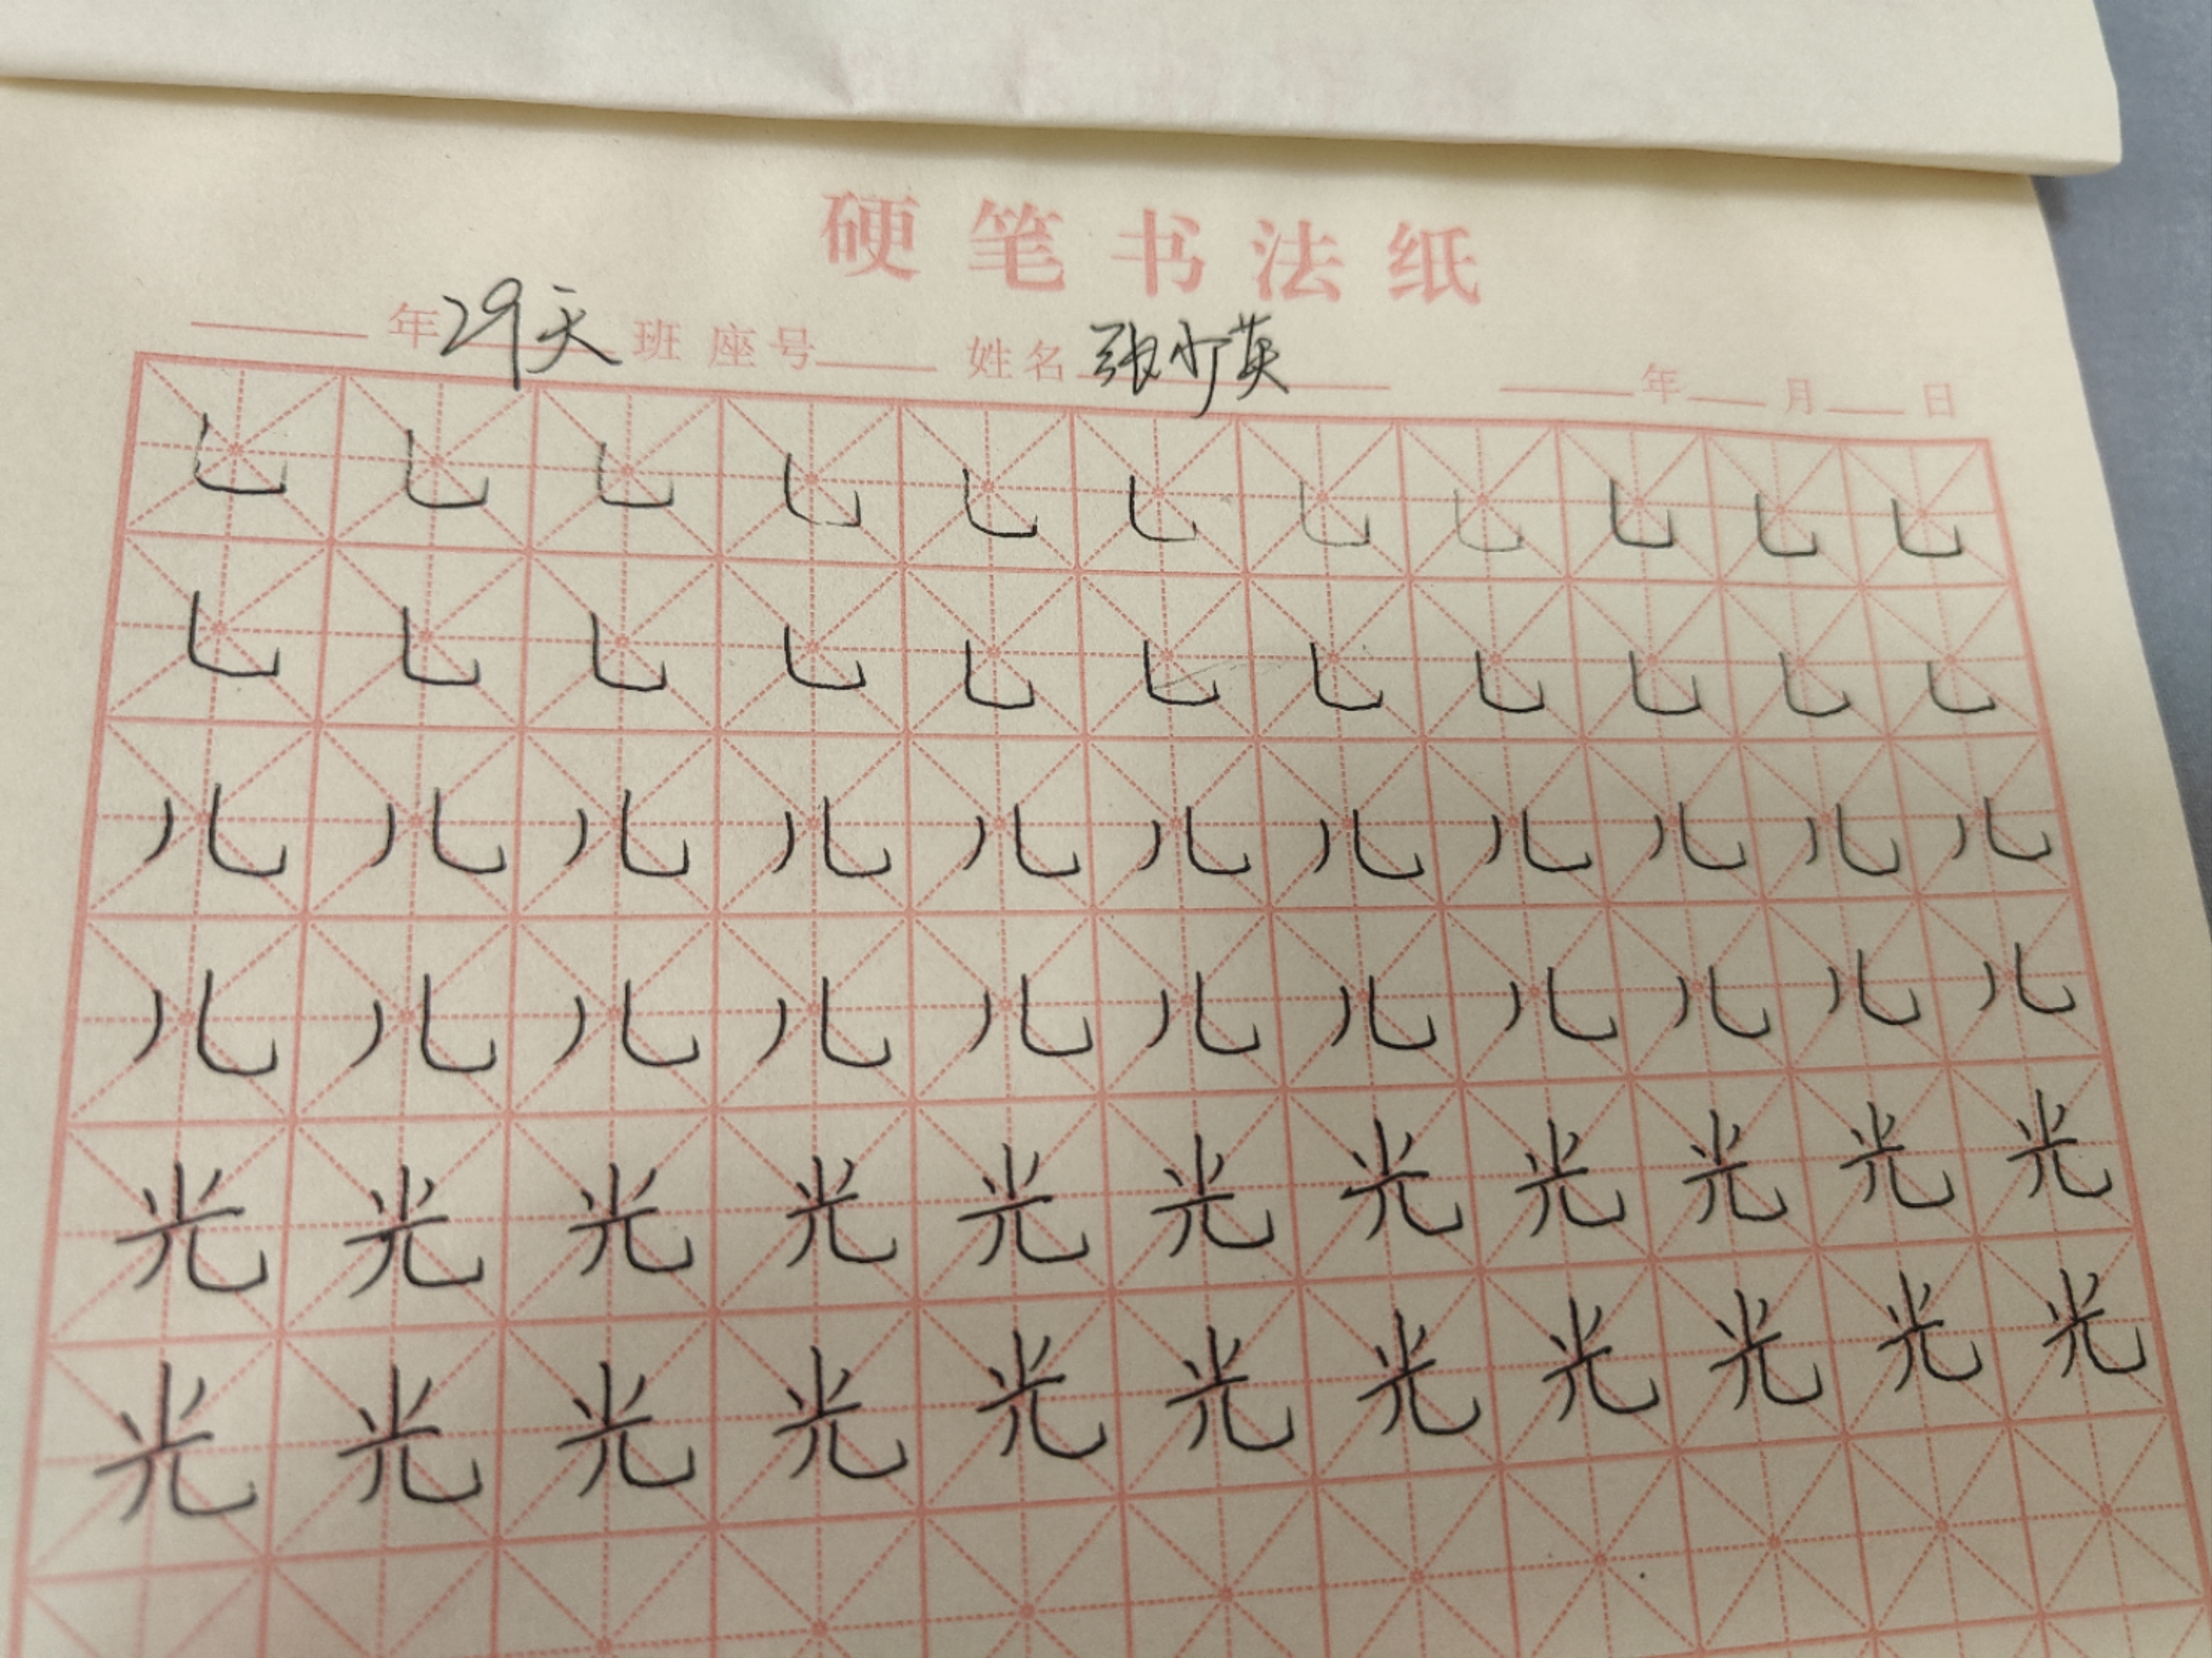 硬笔书法纸
年29天班 座号 姓名 张少英 年 月 日
乚 乚 乚 乚 乚 乚 乚 乚 乚 乚 乚
乚 乚 乚 乚 乚 乚 乚 乚 乚 乚 乚
儿 儿 儿 儿 儿 儿 儿 儿 儿 儿 儿
儿 儿 儿 儿 儿 儿 儿 儿 儿 儿 儿
光 光 光 光 光 光 光 光 光 光 光
光 光 光 光 光 光 光 光 光 光 光